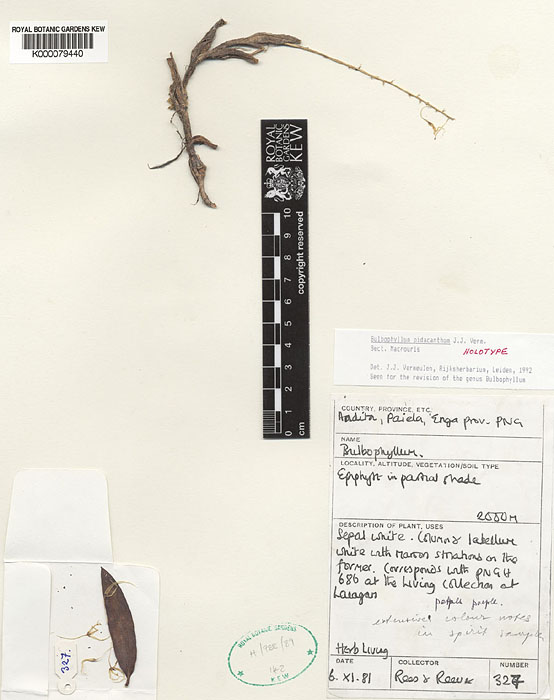 ROYAL BOTANIC GARDENS KEW
K000079440
ROYAL
BOTANIC
GARDENS
KEW
copyright reserved
0 1 2 3 4 5 6 7 8 9 10
cm
J.J. Verm.
Sect. Macrouris
HOLOTYPE
Det. J.J. Vermeulen, Rijksherbarium, Leiden, 1992
Seen for the revision of the genus Bulbophyllum
COUNTRY, PROVINCE, ETC.
Paiela, Enga prov. PNG
NAME
Bulbophyllum.
LOCALITY, ALTITUDE, VEGETATION/SOIL TYPE
Epiphyte in partial shade
2000M
DESCRIPTION OF PLANT, USES
Sepal white. Column & labellum
white with maroon striations on the
former. Corresponds with PNGH
686 at the Living Collection at
petals purple.
extensive colour notes
in spirit sample
Herb Living
DATE
COLLECTOR
NUMBER
6. XI. 81
Rees & Reeve
327
327.
ROYAL BOTANIC GARDENS
KEW